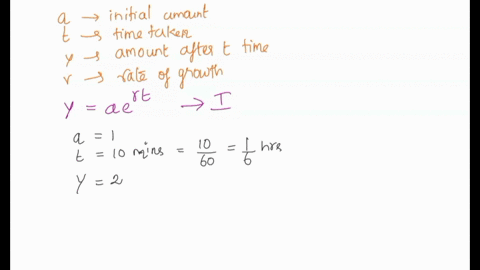 a → initial amount
t → time taken
y → amount after t time
r → rate of growth
y = ae^rt → I
a = 1
t = 10 mins = 10/60 = 1/6 hrs
y = 2